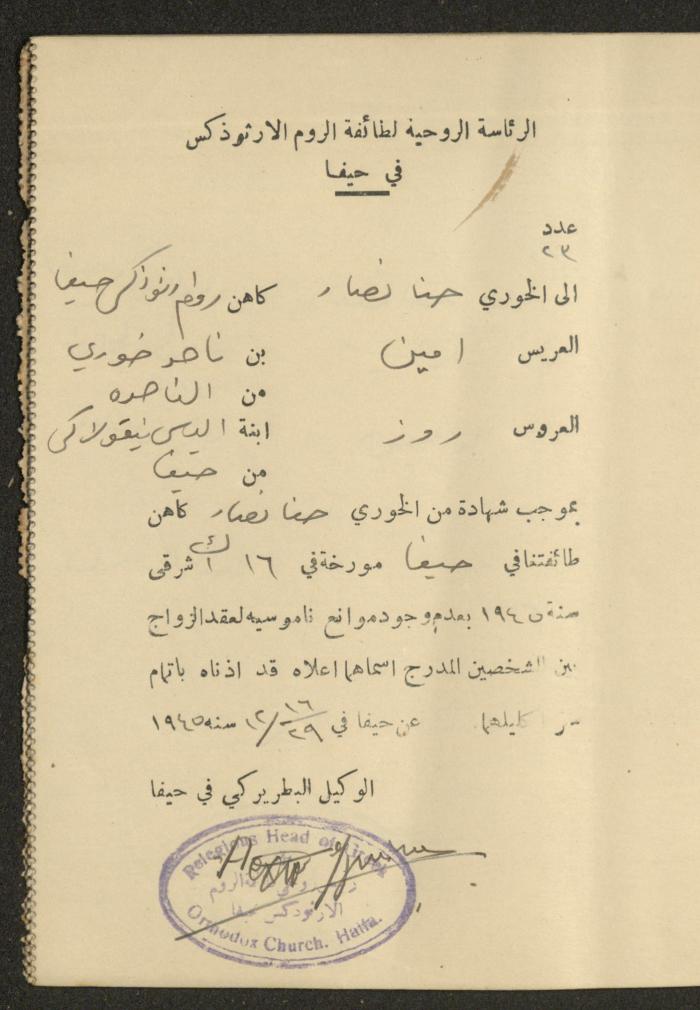 الرئاسة الروحية لطائفة الروم الارثوذكس
في حيفا
عدد
٢٣
الى الخوري حنا نصار كاهن روم ارثوذكس حيفا
العريس امين بن ناصر خوري
من الناصره
العروس روز ابنة الياس نيقولاكي
من حيفا
بموجب شهادة من الخوري حنا نصار كاهن
طائفتنا في حيفا مورخة في ١٦ ك ١ شرقي
سنة ١٩٤٥ بعدم وجود موانع ناموسيه لعقد الزواج
بين الشخصين المدرج اسماهما اعلاه قد اذناه باتمام
سر اكليلهما عن حيفا في ١٦/٢٩ /١٢ سنه ١٩٤٥
الوكيل البطريركي في حيفا
Relegious Head of Greek
الروم
الارثوذكس بحيفا
Orthodox Church. Haifa.